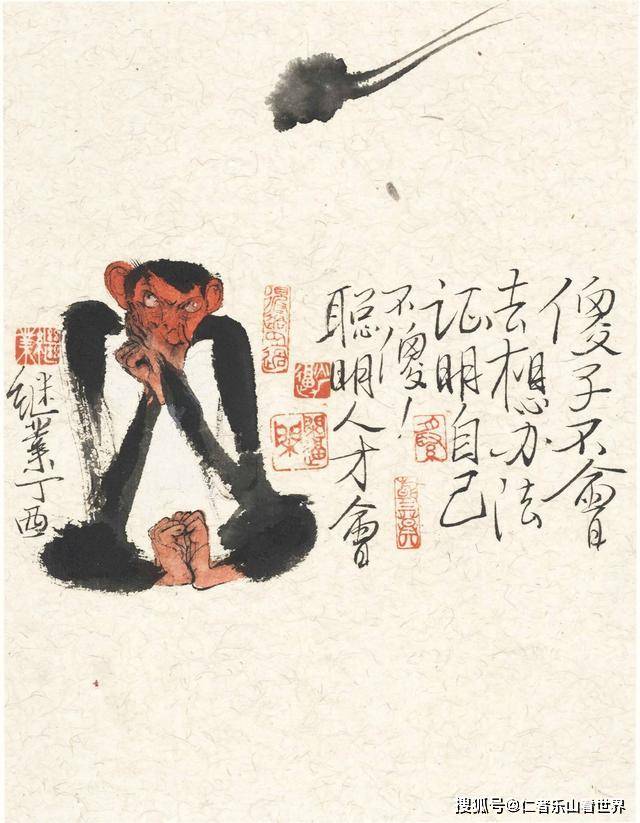 傻子不會
去想办法
证明自己
不傻！
聪明人才會
继業丁酉
搜狐号@仁者乐山看世界